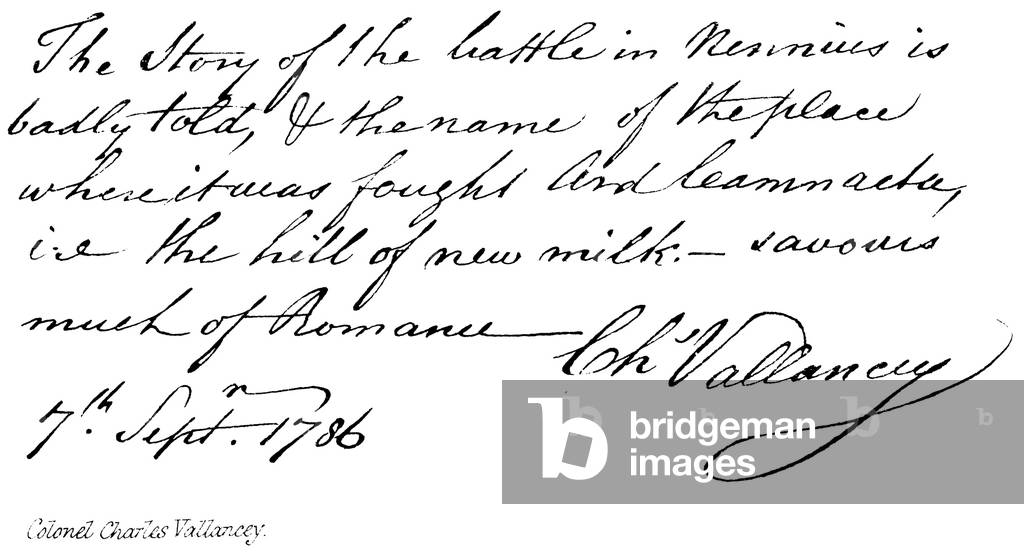 The Story of the battle in Nennius is
badly told, & the name of the place
where it was fought Ard leamnacta,
i.e the hill of new milk. — savours
much of Romance —
Chs Vallancey
7th. Septr. 1786
bridgeman
images
Colonel Charles Vallancey.